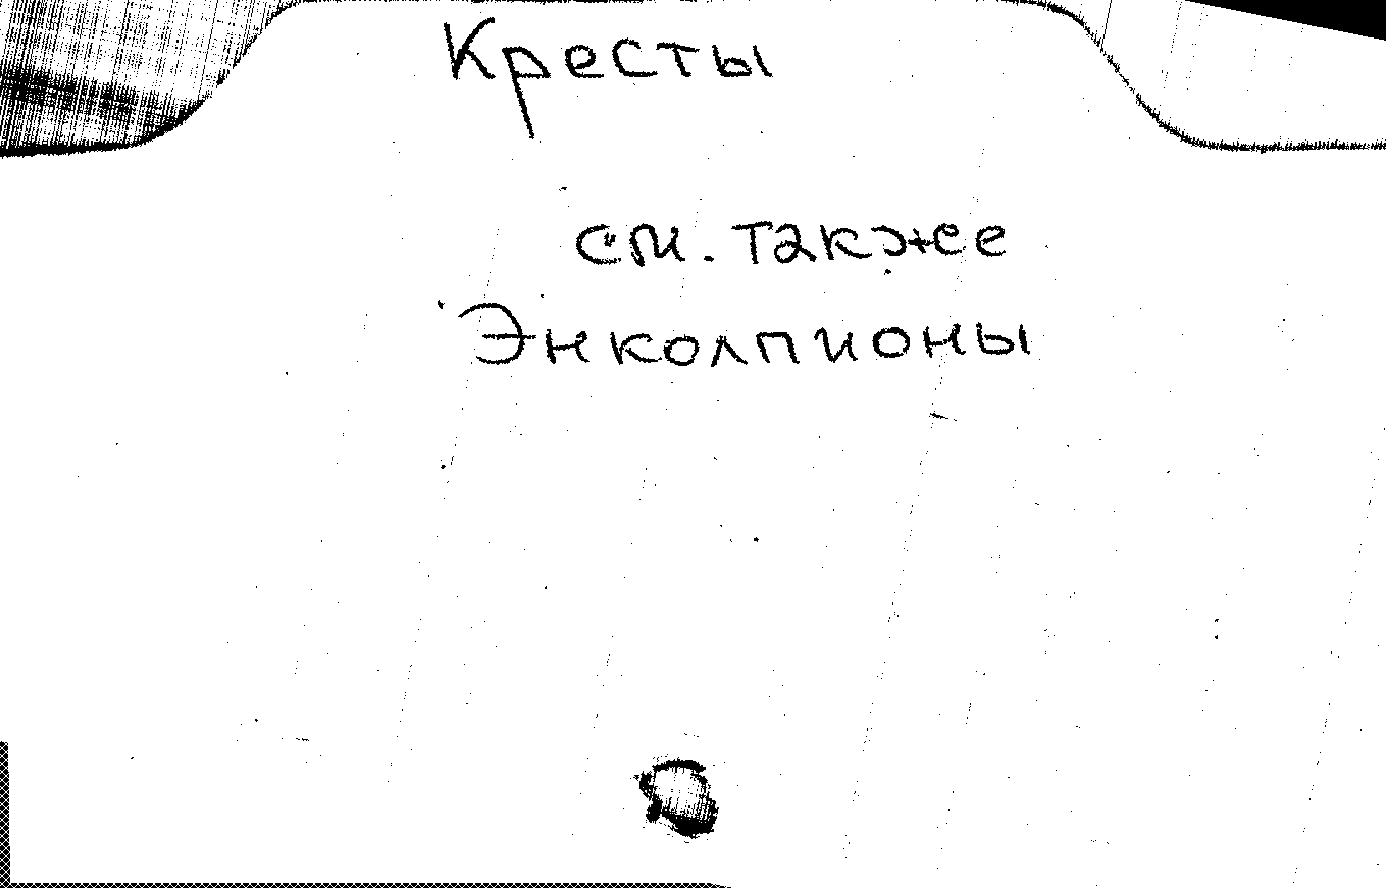 Кресты
см. также
Энколпионы